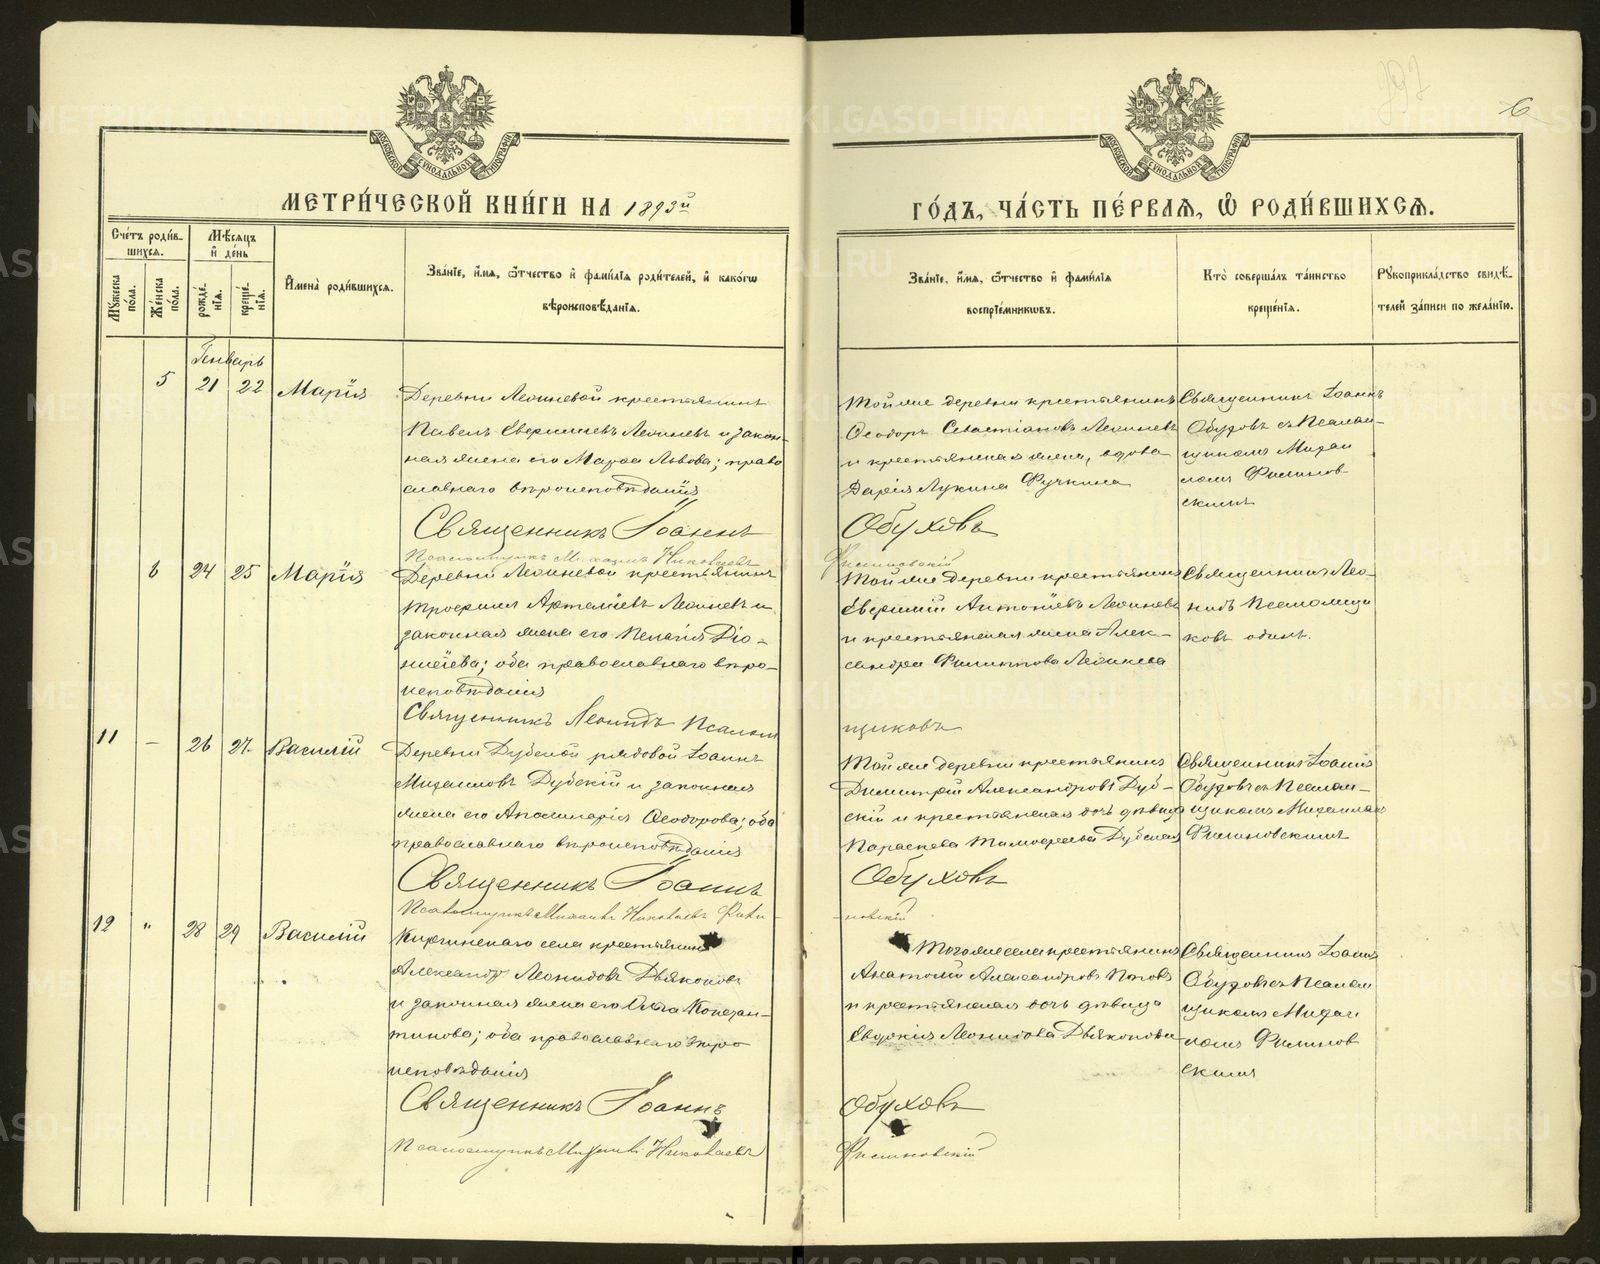 292
6
МОСКОВСКОЙ СѴНОДАЛЬНОЙ ТИПОГРАФІИ
МОСКОВСКОЙ СѴНОДАЛЬНОЙ ТИПОГРАФІИ
МЕТРИ́ЧЕСКОЙ КНИ́ГИ НА 1893й
ГО́ДЪ, ЧА́СТЬ ПЕ́РВАѦ, Ѽ РОДИ́ВШИХСѦ.
Сче́тъ роди́в-
шихся.
Мѣ́сяцъ
и де́нь
Му́жеска по́ла.
Же́нска по́ла.
рожде́-нія.
креще́-нія.
Имена̀ роди́вшихся.
Зва́ніе, и́мя, ѻ́тчество и фами́лія роди́телей, и како́гѡ
вѣроисповѣ́данія.
Зва́ніе, и́мя, ѻ́тчество и фами́лія
воспріе́мникѡвъ.
Кто̀ соверша́лъ та́инство
креще́нія.
Рꙋкоприкла́дство свидѣ́-
телей за́писи по жела́нію.
Генварь
5 21 22 Марія
Деревни Леоневой крестьянинъ
Павелъ Евфиміевъ Леоневъ и закон-
ная жена его Марѳа Львова; право
славнаго вѣроисповѣданія
Священникъ Іоаннъ
Псаломщикъ Михаилъ Николаевъ
Той же деревни крестьянинъ
Ѳеодоръ Севастіановъ Леоневъ
и крестьянская жена, вдова
Дарія Лукина Фучкина
Обуховъ
Филиновскій
Священникъ Іоаннъ
Обуховъ съ Псалом-
щикомъ Михаи
ломъ Филинов
скимъ
6 24 25 Марія
Деревни Леоневой крестьянинъ
Трофимъ Артеміевъ Леоневъ и
законная жена его Пелагія Діо-
нисіева; оба православнаго вѣро-
исповѣданія
Священникъ Леонидъ Псалом
Той же деревни крестьянинъ
Евфимій Антоніевъ Леоневъ
и крестьянская жена Алек-
сандра Филиппова Леонева
щиковъ
Священникъ Лео-
нидъ Псаломщи
ковъ одинъ.
11 — 26 27 Василій
Деревни Дубской рядовой Іоаннъ
Михаиловъ Дубскій и законная
жена его Аполинарія Ѳеодорова; оба
православнаго вѣроисповѣданія
Священникъ Іоаннъ
Псаломщикъ Михаилъ Николаевъ Фили-
Той же деревни крестьянинъ
Димитрій Александровъ Дуб-
скій и крестьянская дочь дѣвица
Параскева Тимоѳеева Дубская
Обуховъ
новскій
Священникъ Іоаннъ
Обуховъ съ Псалом-
щикомъ Михаиломъ
Филиновскимъ
12 " 28 29 Василій
Киргинскаго села крестьянинъ
Александръ Леонидовъ Дьяконовъ
и законная жена его Ольга Констан-
тинова; оба православнаго вѣро
исповѣданія
Священникъ Іоаннъ
Псаломщикъ Михаилъ Николаевъ
Того же села крестьянинъ
Анатолій Александровъ Поповъ
и крестьянская дочь дѣвица
Евдокія Леонидова Дьяконова
Обуховъ
Филиновскій
Священникъ Іоаннъ
Обуховъ съ Псалом
щикомъ Михаи
ломъ Филинов
скимъ
METRIKI.GASO-URAL.RU